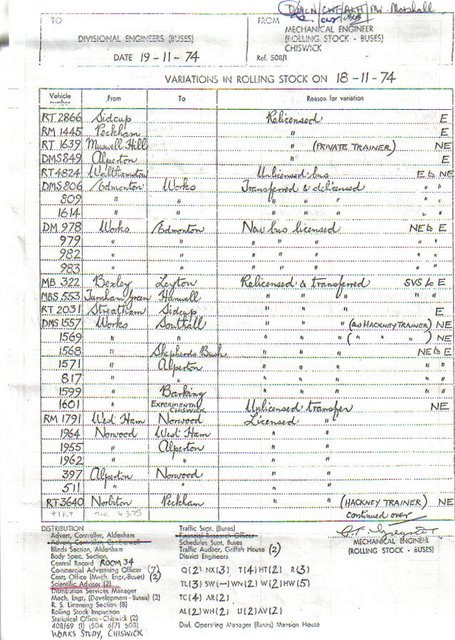 TO FROM
DIVISIONAL ENGINEERS (BUSES) MECHANICAL ENGINEER
(ROLLING STOCK - BUSES)
CHISWICK
DATE 19-11-74 Ref. 508/1
VARIATIONS IN ROLLING STOCK ON 18-11-74
Vehicle number From To Reason for variation
RT 2866 Sidcup Relicensed E
RM 1445 Peckham " E
RT 1639 Muswell Hill " (PRIVATE TRAINER) NE
DMS 849 Alperton " E
RT 4824 Walthamstow Unlicensed bus E to NE
DMS 806 Edmonton Works Transferred & delicensed " "
809 " " " " " "
1614 " " " " " "
DM 978 Works Edmonton New bus licensed NE to E
979 " " " " " " "
982 " " " " " " "
983 " " " " " " "
MB 322 Bexley Leyton Relicensed & transferred SVS to E
MBS 553 Turnham Green Hanwell " " "
RT 2031 Streatham Sidcup " " " E
DMS 1557 Works Southall " " " (as HACKNEY TRAINER) NE
1569 " " " " " ( " " ) NE
1568 " Shepherds Bush " " " NE to E
1571 " Alperton " " " " "
817 " " " " " " "
1599 " Barking " " " " "
1601 " EXPERIMENTAL CHISWICK Unlicensed transfer NE
RM 1791 West Ham Norwood Licensed "
1964 Norwood West Ham " "
1955 " Alperton " "
1962 " " " "
397 Alperton Norwood " "
511 " " " "
RT 3640 Norbiton Peckham " " (HACKNEY TRAINER) NE
continued over
MECHANICAL ENGINEER
(ROLLING STOCK - BUSES)
DISTRIBUTION
Advert, Controller, Aldenham
Advert, Controller, Camberwell
Blinds Section, Aldenham
Body Spec. Section,
Central Record ROOM 34
Commercial Advertising Officer (7)
Costs Office (Mech. Engr.-Buses) (2)
Scientific Adviser (2)
Distribution Services Manager
Mech. Engr. (Development - Buses) (2)
R. S. Licensing Section (8)
Rolling Stock Inspection
Statistical Office - Chiswick (2)
408/69 (1) (504 6/71 503)
WORKS STUDY, CHISWICK
Traffic Supt. (Buses)
Financial Research Officer
Schedules Supt. Buses
Traffic Auditor, Griffith House (2)
District Engineers
Q(2) NX(3) T(4) HT(2) R(3)
TL(3) SW(-) WN(2) W(2) HW(5)
TC(4) AR(2)
AL(2) WH(2) U(2) AV(2)
Divl. Operating Manager (Buses) Mansion House